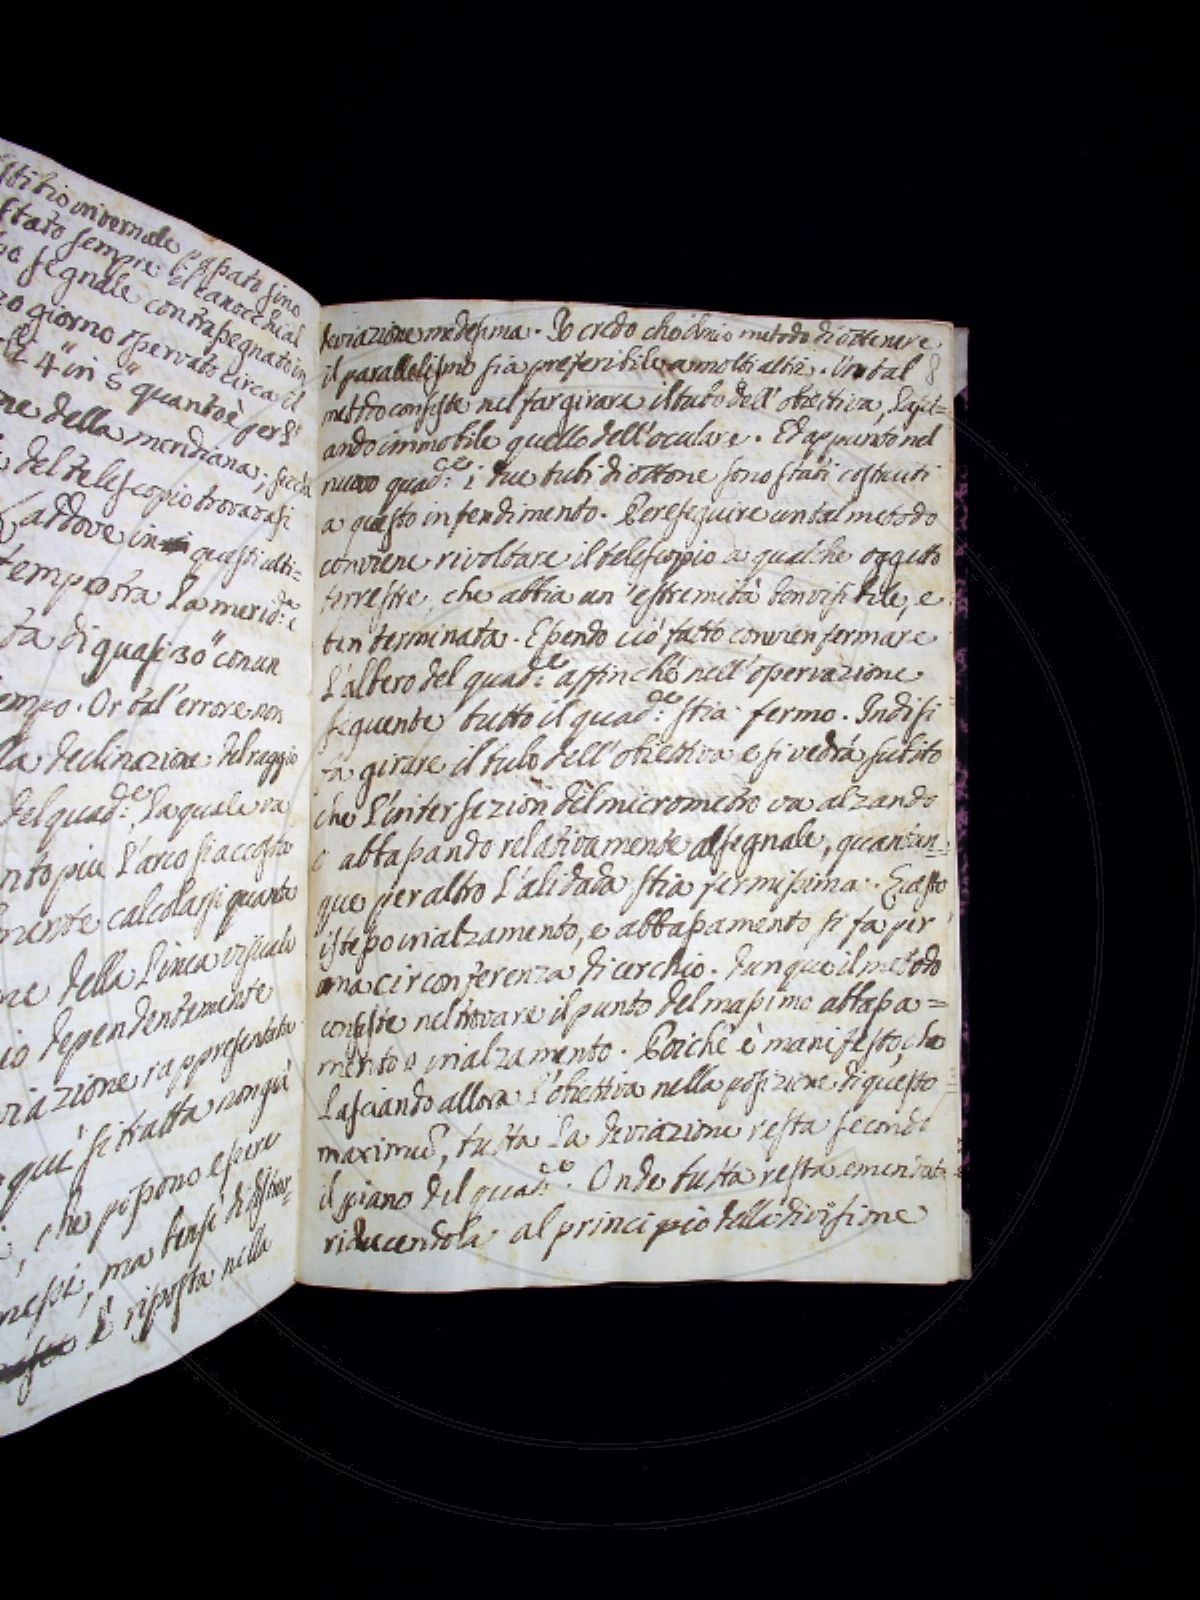 stitio invernale passato sino
stato sempre il canocchial
segnale contrapegnato in
zo giorno osservato circa il
4" in 5" quanto è per l'
ne della meridiana; sicchè
del telescopio trovavasi
addove in questi ulti=
tempo tra la merid:na e
ta di quasi 30" con un
empo. Or tal' errore non
la declinazione del raggio
del quad:te, la quale va
nto piu l'arco si accosta
mente calcolarsi quanta
ne della linea visuale
io dependentemente
viazione rappresentata
qui si tratta non gia
, che possono essere
messi, ma bensi di distrar=
è risposta nella
deviazione medesima. Io credo che il mio metodo di ottenere
il parallelismo sia preferibile a molti altri. Un tal 8
metodo consiste nel far girare il tubo dell' obiettiva, lasci=
ando immobile quello dell'oculare. Ed appunto nel
nuovo quad:te i due tubi di ottone sono stati costruiti
a questo intendimento. Per eseguire un tal metodo
conviene rivoltare il telescopio a qualche oggetto
terrestre, che abbia un' estremità ben visibile, e
ben terminata. Essendo ciò fatto convien fermare
l'albero del quad:te affinchè nell' osservazione
seguente tutto il quad:te stia fermo. Indi si
fa girare il tubo dell' obiettiva e si vedrà subito
che l'intersezion del micrometro va alzando
o abbassando relativamente al segnale, quantun=
que per altro l'alidada stia fermissima. E questo
istesso inalzamento, e abbassamento si fa per
una circonferenza di cerchio. Dunque il metodo
consiste nel trovare il punto del massimo abbassa=
mento o inalzamento. Poichè è manifesto, che
lasciando allora l'obiettiva nella posizione di questo
maximum, tutta la deviazione resta secondo
il piano del quad:te. Onde tutta resta emendata
riducendola al principio della divisione